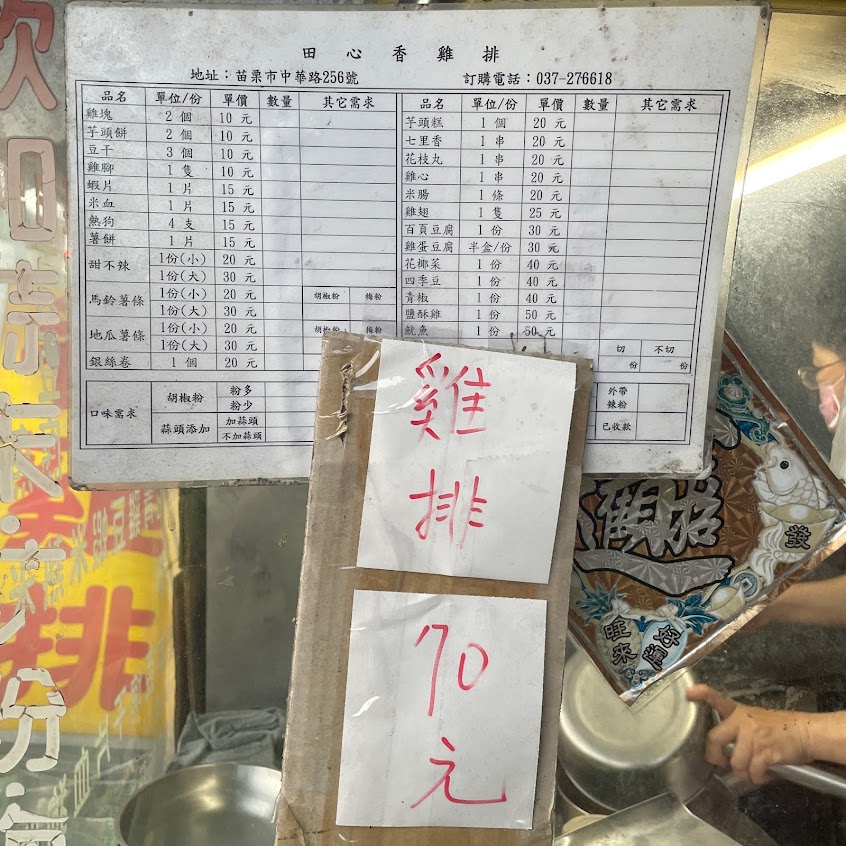 田心香雞排
地址：苗栗市中華路256號 訂購電話：037-276618
品名 單位/份 單價 數量 其它需求
雞塊 2 個 10 元
芋頭餅 2 個 10 元
豆干 3 個 10 元
雞腳 1 隻 10 元
蝦片 1 片 15 元
米血 1 片 15 元
熱狗 4 支 15 元
薯餅 1 片 15 元
甜不辣 1份(小) 20 元
1份(大) 30 元
馬鈴薯條 1份(小) 20 元 胡椒粉 梅粉
1份(大) 30 元
地瓜薯條 1份(小) 20 元 胡椒粉 梅粉
1份(大) 30 元
銀絲卷 1 個 20 元
品名 單位/份 單價 數量 其它需求
芋頭糕 1 個 20 元
七里香 1 串 20 元
花枝丸 1 串 20 元
雞心 1 串 20 元
米腸 1 條 20 元
雞翅 1 隻 25 元
百頁豆腐 1 份 30 元
雞蛋豆腐 半盒/份 30 元
花椰菜 1 份 40 元
四季豆 1 份 40 元
青椒 1 份 40 元
鹽酥雞 1 份 50 元
魷魚 1 份 50 元
切 不切
份 份
口味需求 胡椒粉 粉多
粉少
蒜頭添加 加蒜頭
不加蒜頭
外帶
辣粉
已收款
雞
排
70
元
發
旺
來
排